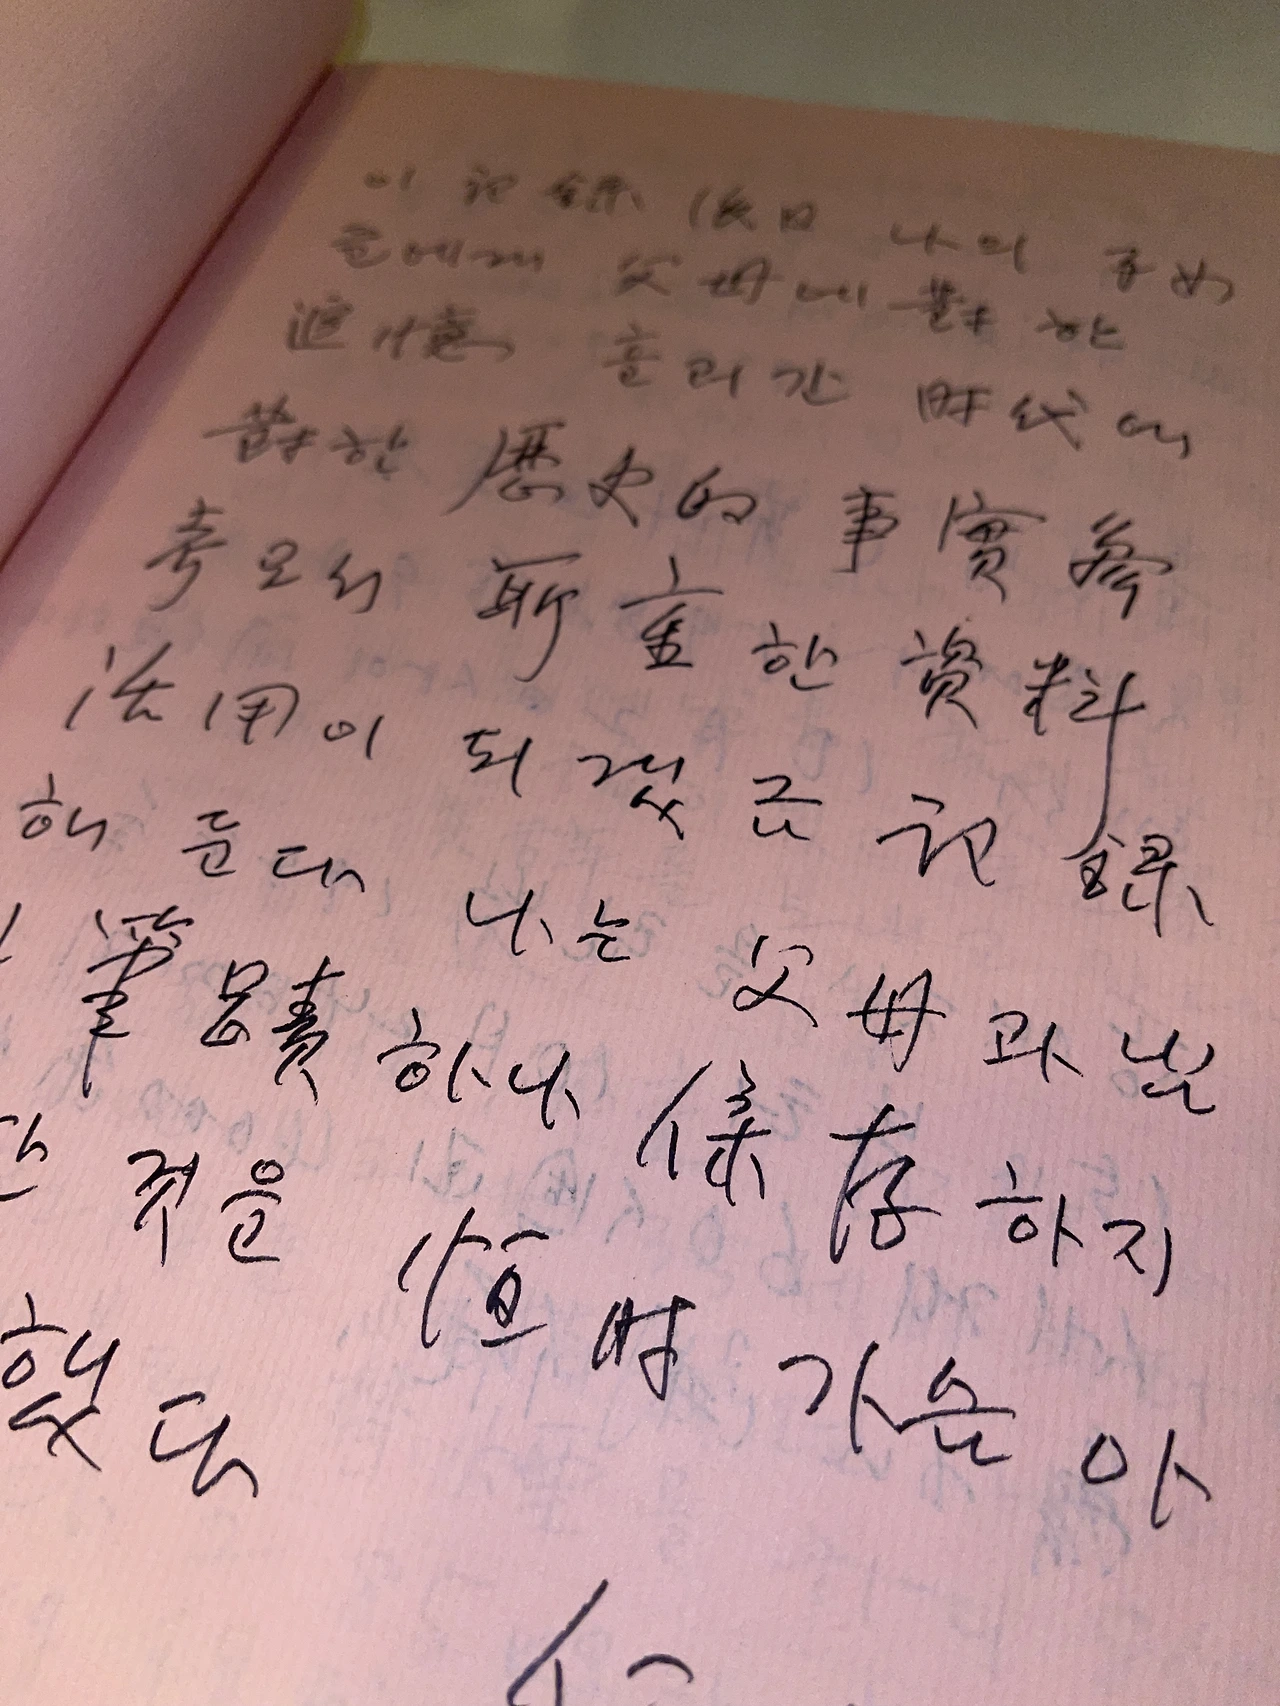 이 記錄 後日 나의 子女
들에게 父母에 對한
追憶 흘러간 時代에
對한 歷史的 事實 參
考로서 所重한 資料
活用이 되겠끔 記錄
해 둔다 나는 父母과 님
筆蹟 하나 保存하지
것을 恒時 가슴 아
했다